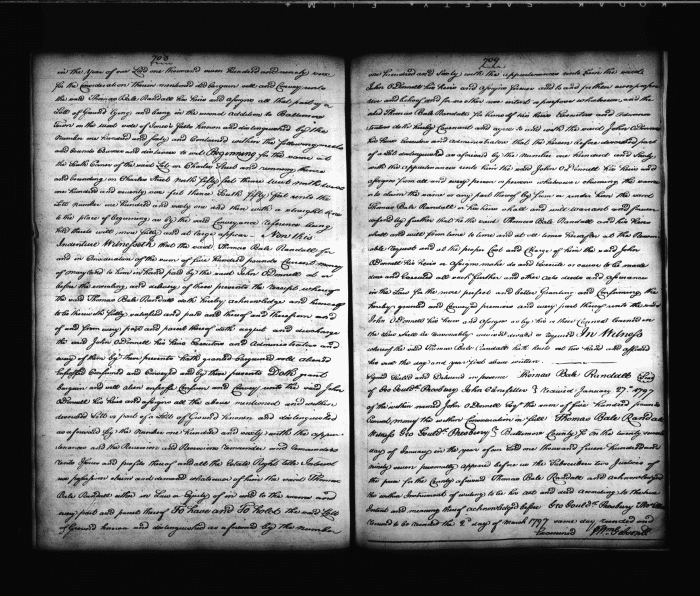 703
in the Year of our Lord one thousand seven hundred and ninety
for the Consideration therein mentioned did bargain sell and Convey unto
the said Thomas Bale Randall his heirs and assigns all that part of a
Lott of Ground lying and being in the second Addition to Baltimore
Town on the west side of Jones's Falls known and distinguished by the
Number one hundred and Sixty and Contained within the following meets
and bounds Courses and distances to wit Beginning for the same at
the South Corner of the said Lott on Charles Street and running thence
and bounding on Charles Street North fifty feet thence West
one hundred and seventy one feet thence South fifty feet unto the
Lott number one hundred and sixty one and then with a straight line
to the place of Beginning as by the said Conveyance reference being
had thereto will more fully and at large appear Now this
Indenture Witnesseth that the said Thomas Bale Randall for
and in Consideration of the sum of five hundred pounds Current money
of Maryland to him in hand paid by the said John O'Donnell at or
before the sealing and delivery of these presents the receipt whereof
the said Thomas Bale Randall doth hereby acknowledge and himself
to be therewith fully satisfied and paid and thereof and therefrom and
of and from every part and parcel thereof doth acquit and discharge
the said John O'Donnell his heirs Executors and Administrators and
every of them by these presents hath granted bargained sold aliened
enfeoffed Confirmed and Conveyed and by these presents Doth grant
bargain and sell alien enfeoff Confirm and Convey unto the said John
O'Donnell his heirs and assigns all the above mentioned and
described Lott or part of a Lott of Ground known and distinguished
as aforesaid by the Number one hundred and sixty with the appur
tenances and the Reversion and Reversions Remainder and Remainders
Rents Issues and profits thereof and all the Estate Right title Interest
use possession claim and demand whatsoever of him the said Thomas
Bale Randall either in Law or Equity of in and to the same and
every part and parcel thereof To have and To hold the said Lott
of Ground known and distinguished as aforesaid by the Number
704
one hundred and Sixty with the appurtenances unto him the said
John O'Donnell his heirs and assigns forever and to and for
use and behoof and for no other use intent or purpose whatsoever and the
said Thomas Bale Randall for himself his heirs Executors and Adminis
trators doth hereby Covenant and agree to and with the said John O'Donnell
his heirs Executors and administrators that the herein before described part
of a Lott distinguished as aforesaid by the Number one hundred and Sixty
with the appurtenances unto him the said John O'Donnell his heirs and
assigns against all and every person or persons whatsoever claiming the same
or to claim the same or any part thereof by from or under him the said
Thomas Bale Randall or his heirs shall and will warrant and forever
defend by further that he the said Thomas Bale Randall and his heirs
shall and will from time to time and at all times hereafter at the Reason
able request and at the proper Cost and Charge of him the said John
O'Donnell his heirs or assigns make do and execute or cause to be made
done and executed all such further and other acts deeds and assurances
in the Law for the more perfect and better Granting and Confirming the
hereby granted and Conveyed premises and every part thereof unto the said
John O'Donnell his heirs and assigns as by his or their Counsel learned in
the Law shall be reasonably devised advised or required In Witness
whereof the said Thomas Bale Randall hath hereto set his hand and affixed
his seal the day and year first above written
Signed Sealed and Delivered in presence Thomas Bale Randall Seal
of Geo Gould. Presbury Received January 27th 179
of the within named John O'Donnell Esqr the sum of five hundred pounds
Current money the within Consideration in full Thomas Bale Randall
Witness Geo Gould. Presbury Baltimore County Ss on the twenty seventh
day of January in the year of our Lord one thousand seven hundred and
ninety seven personally appeared before us the Subscribers two Justices of
the peace for the County aforesaid Thomas Bale Randall and acknowledged
the within Instrument of writing to be his act and deed according to the true
Intent and meaning thereof acknowledged before Geo Gould. Presbury
Received to be recorded the 2d day of March 1797 same day recorded and
Examined Wm Gibson